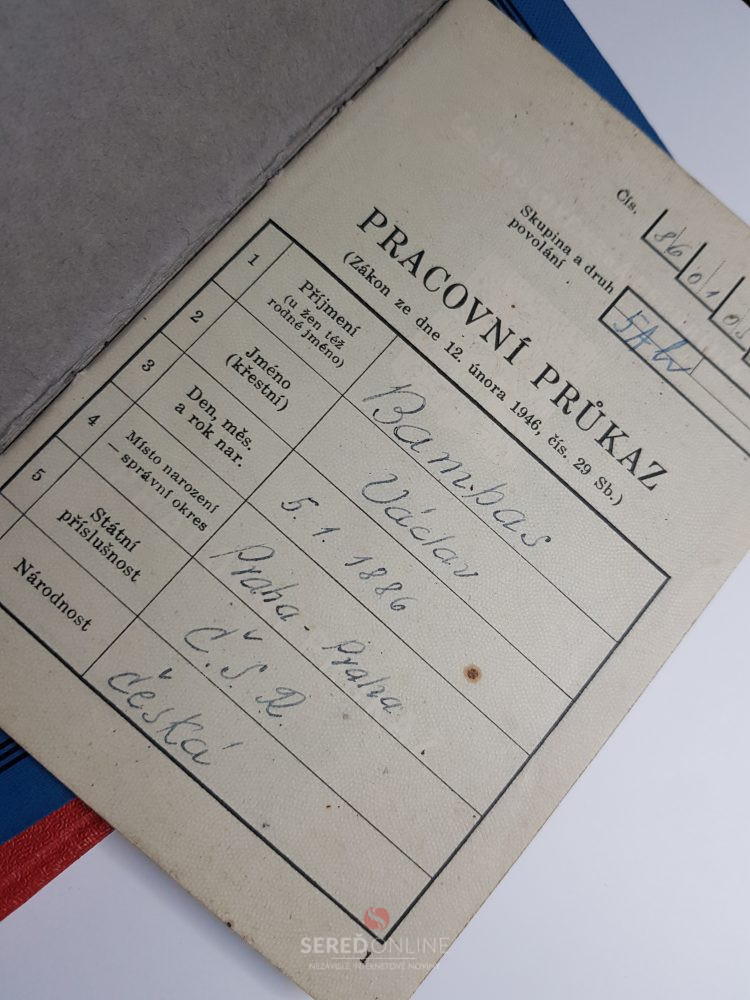 Čís.
86 0 1 05
Skupina a druh
povolání
PRACOVNÍ PRŮKAZ
(Zákon ze dne 12. února 1946, čís. 29 Sb.)
1
Příjmení
(u žen též
rodné jméno)
Bambas
2
Jméno
(křestní)
Václav
3
Den, měs.
a rok nar.
5. 1. 1886
4
Místo narození
— správní okres
Praha - Praha
5
Státní
příslušnost
Č. S. R.
Národnost
česká
1
SEREĎONLINE
NEZÁVISLÉ INTERNETOVÉ NOVINY